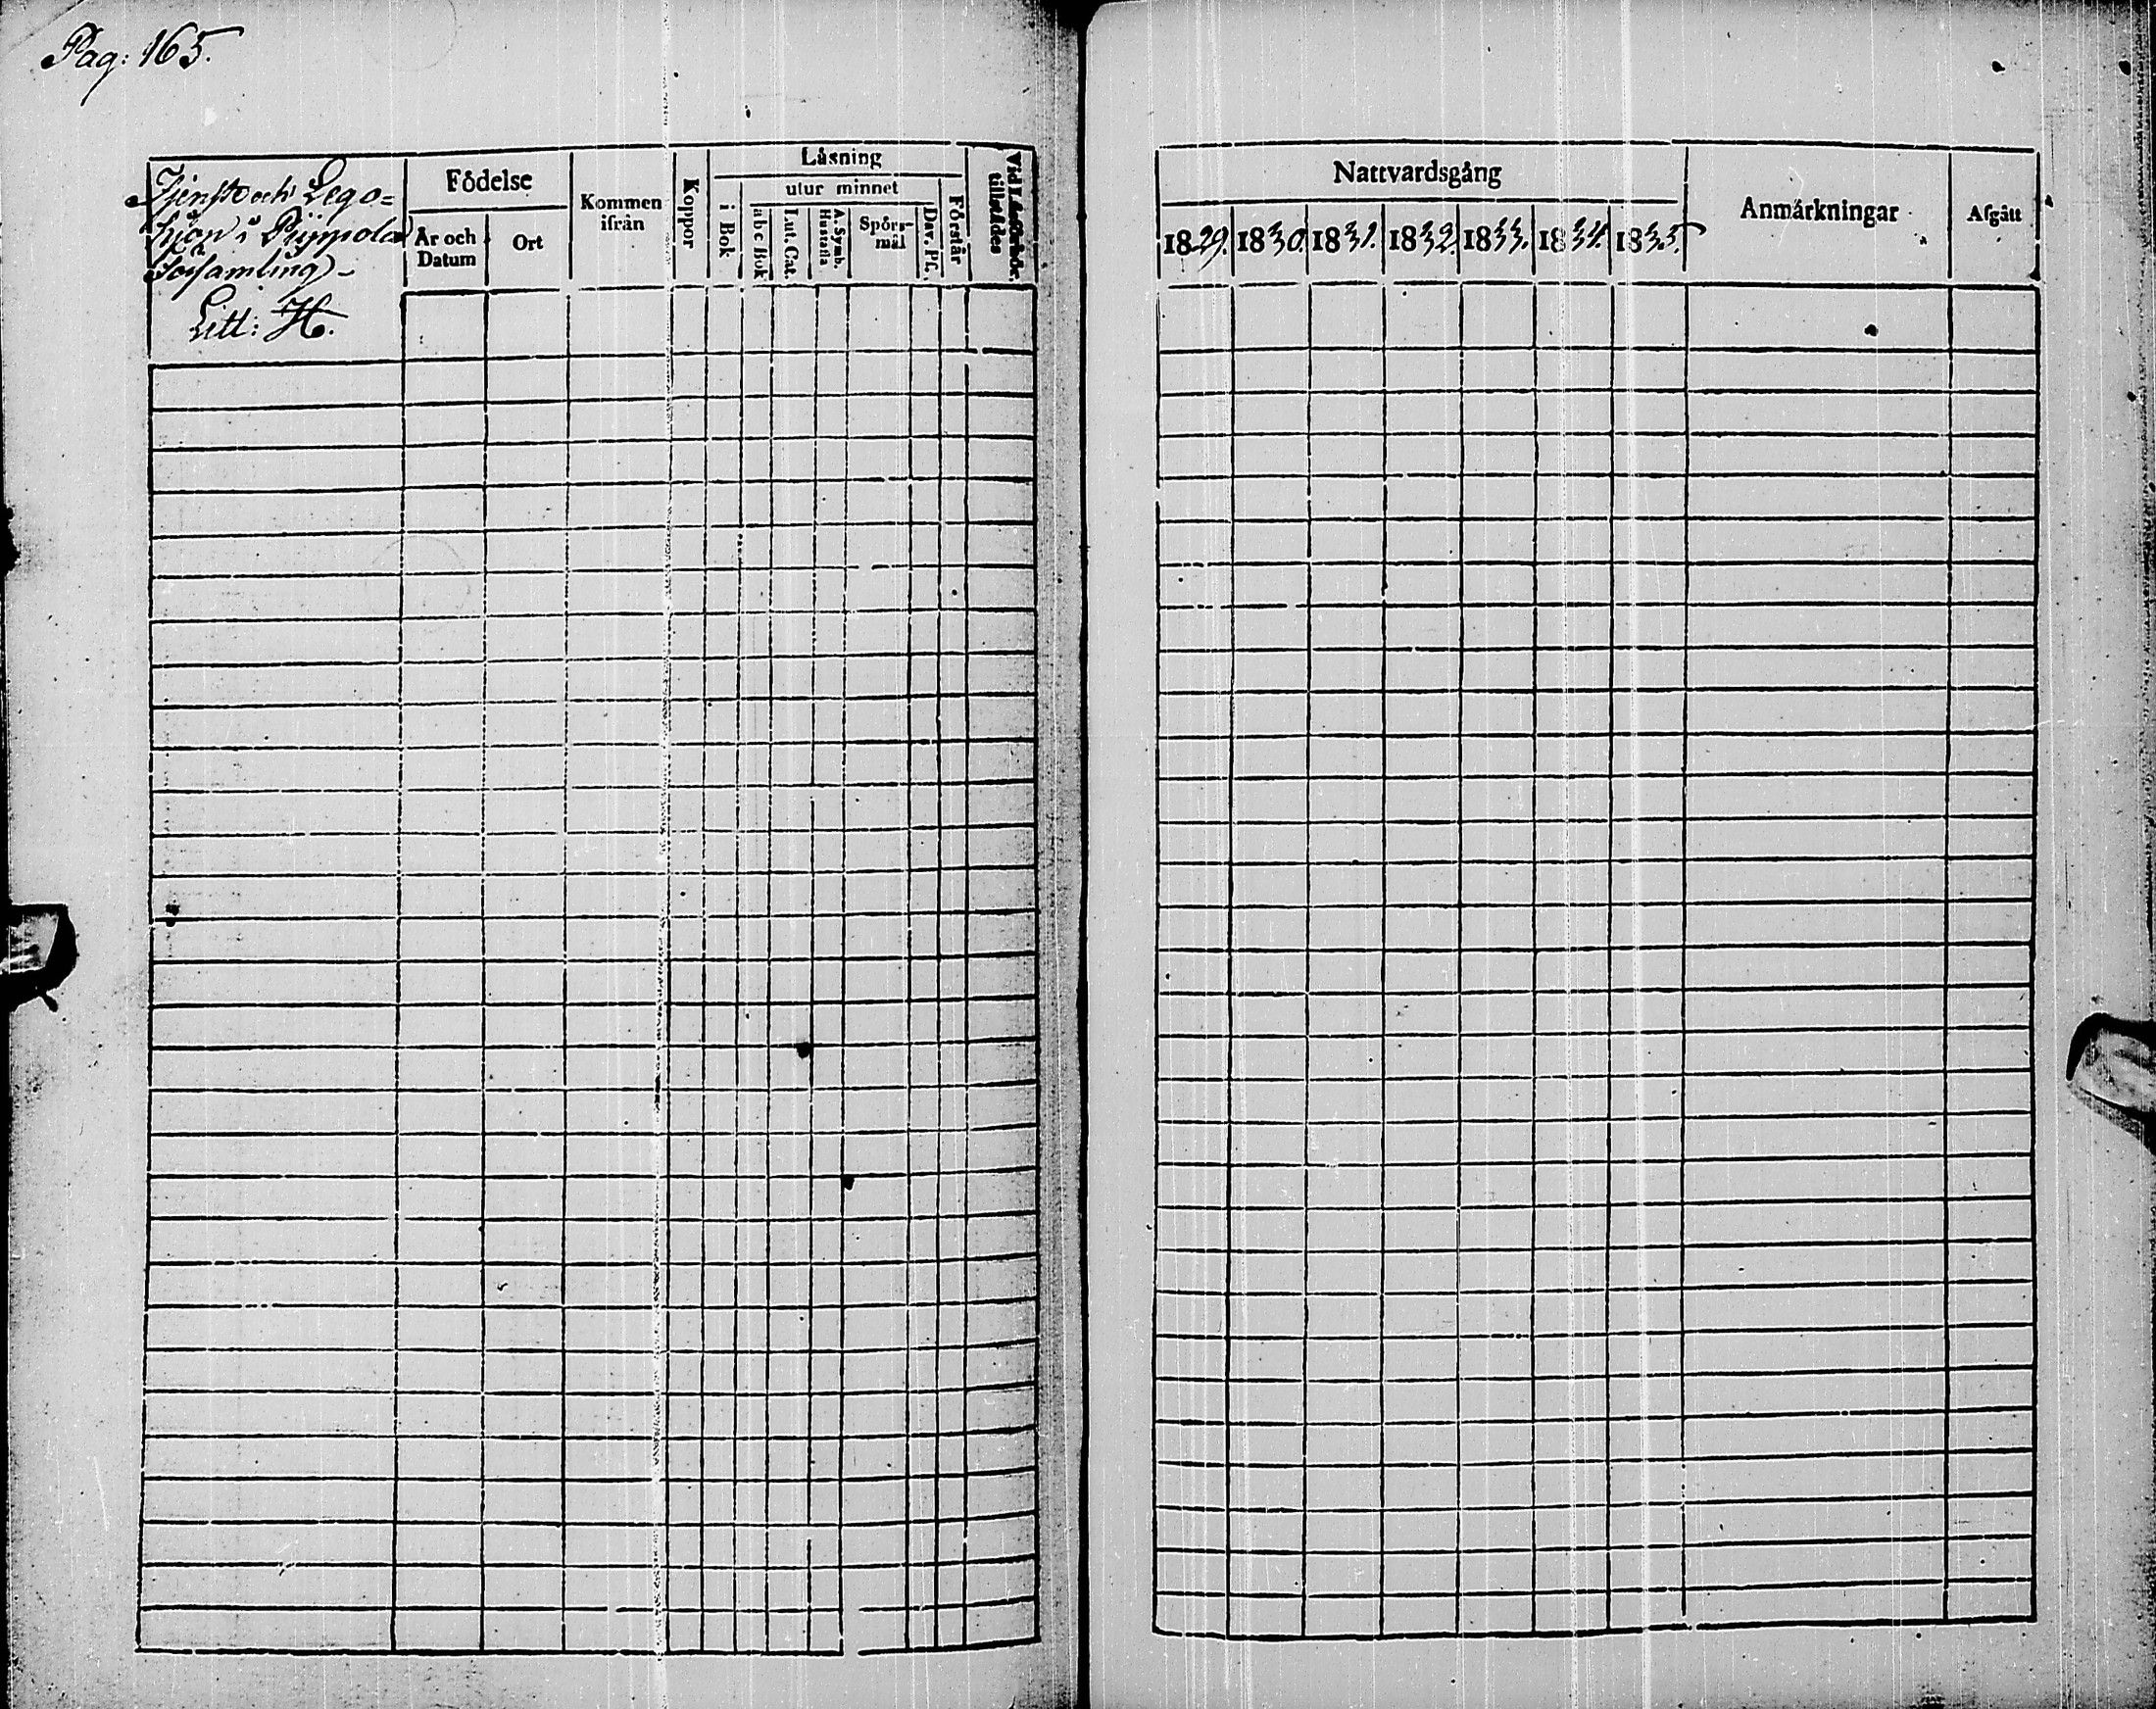 Pag: 165.
Tjenste och Lego=
hjon i Piippola
Församling.
Litt: H.
Födelse
År och
Datum
Ort
Kommen
ifrån
Koppor
Låsning
i Bok
utur minnet
abc Bok
Lut. Cat.
A. Symb.
Hustafla
Spörs-
mål
Dav. Ps.
Förstår
Vid Läseförhör.
tillstädes
Nattvardsgång
1829. 1830. 1831. 1832. 1833. 1834. 1835.
Anmärkningar
Afgått